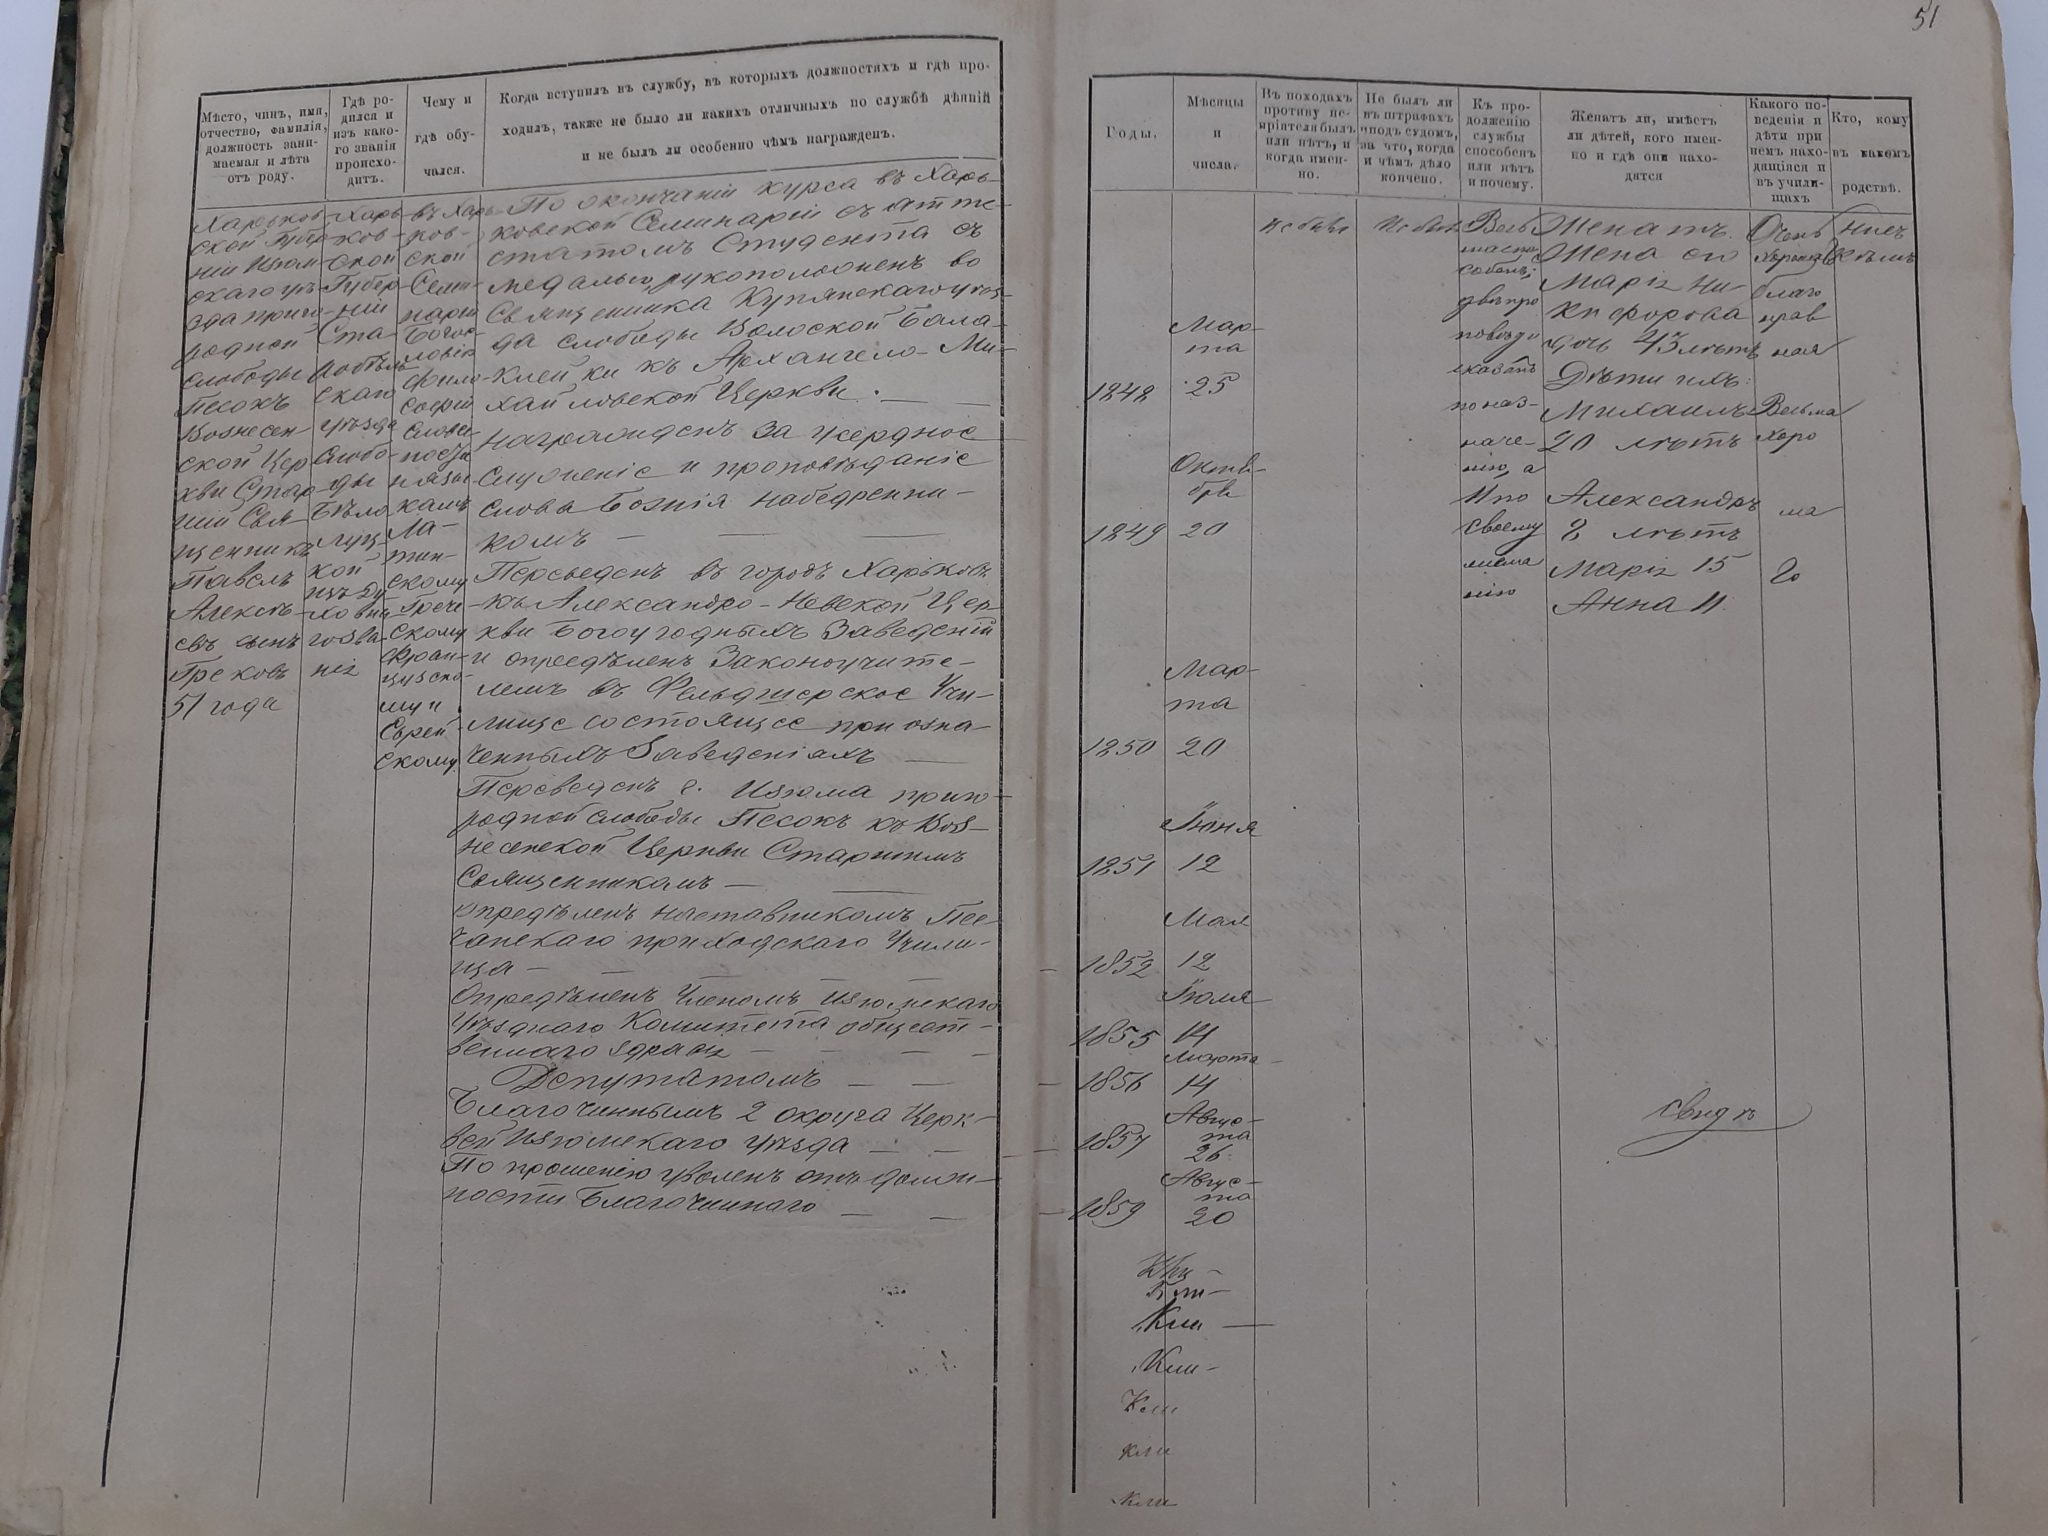 51
Мѣсто, чинъ, имя,
отчество, фамилія,
должность зани-
маемая и лѣта
отъ роду.
Гдѣ ро-
дился и
изъ како-
го званія
происхо-
дитъ.
Чему и
гдѣ обу-
чался.
Когда вступилъ въ службу, въ которыхъ должностяхъ и гдѣ про-
ходилъ, также не было ли какихъ отличныхъ по службѣ дѣяній
и не былъ ли особенно чѣмъ награжденъ.
Харьков-
ской Губер
ніи Изюм
скаго уѣ
зда приго-
родной
слободы
Песокъ
Вознесен-
ской Цер
кви Стар
шій Свя-
щенникъ
Павелъ
Алексѣ-
евъ сынъ
Грековъ
51 года
Харь-
ков-
ской
Губер
ніи
Ста-
робѣль
скаго
уѣзда
Слобо-
ды
Бѣло
луц-
кой
изъ Ду
ховна
го зва-
нія
въ Харь
ков-
ской
Семи-
наріи
Богос-
ловію
фило-
софіи
Слове-
ности
и язы
камъ
Ла-
тин-
скому
Грече-
скому
Фран-
цузско-
му и
Еврей
скому
По окончаніи курса въ Харь-
ковской Семинаріи съ атте-
статомъ Студента съ
медалью, рукоположенъ во
Священника Купянскаго уѣз-
да слободы Волоской Бала-
клейки къ Архангело-Ми-
хайловской Церкви. —
Награжденъ за усердное
служеніе и проповѣданіе
слова Божія набедренни-
комъ — — —
Переведенъ въ городъ Харьковъ
къ Александро-Невской Цер
кви Богоугодныхъ Заведеній
и опредѣленъ Законоучите-
лемъ въ Фельдшерское Учи-
лище состоящее при озна-
ченныхъ Заведеніяхъ —
Переведенъ г. Изюма приго-
родной слободы Песокъ къ Воз-
несенской Церкви Старшимъ
Священникомъ — —
Опредѣленъ наставникомъ Пес-
чанскаго приходскаго Учили-
ща — — — —
Опредѣленъ Членомъ Изюмскаго
Уѣзднаго Комитета общест-
веннаго здравія — — — —
Депутатомъ — —
Благочиннымъ 2 округа Церк-
вей Изюмскаго уѣзда — —
По прошенію уволенъ отъ долж-
ности Благочиннаго — —
Годы.
Мѣсяцы
и
числа.
Въ походахъ
противу не-
пріятеля былъ
или нѣтъ, и
когда имен-
но.
Не былъ ли
въ штрафахъ
и подъ судомъ,
за что, когда
и чѣмъ дѣло
кончено.
Къ про-
долженію
службы
способенъ
или нѣтъ
и почему.
Женатъ ли, имѣетъ
ли дѣтей, кого имен-
но и гдѣ они нахо-
дятся
Какого по-
веденія и
дѣти при
немъ нахо-
дящіяся и
въ учили-
щахъ
Кто, кому
въ какомъ
родствѣ.
1848
Мар-
та
25
1849
Октя-
бря
20
1850
Мар-
та
20
1851
Іюня
12
1852
Мая
12
1855
Іюля
14
1856
Марта
14
1857
Авгус-
та
26
1859
Авгус-
та
20
Не былъ
Не былъ
Весь
ма спо-
собенъ;
двѣ про
повѣди
сказалъ
по наз-
наче-
нію, а
11 по
своему
жела
нію
Женатъ.
Жена его
Марія Ни-
кифорова
дочь 43 лѣтъ
Дѣти ихъ:
Михаилъ
20 лѣтъ
Александръ
8 лѣтъ
Марія 15
Анна 11.
Очень
Хорошаго
благо
нрав
ная
Весьма
хоро
ша
го
Ни съ
кѣмъ